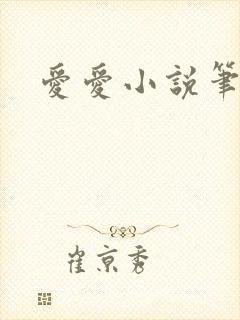 愛愛小説筆
崔京秀